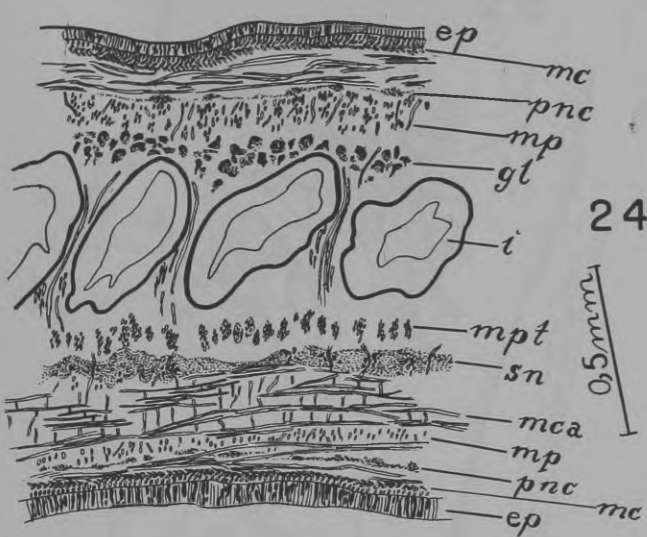 ep
mc
pnc
mp
gl
24
i
mpt
0,5mm
sn
mca
mp
pnc
mc
ep